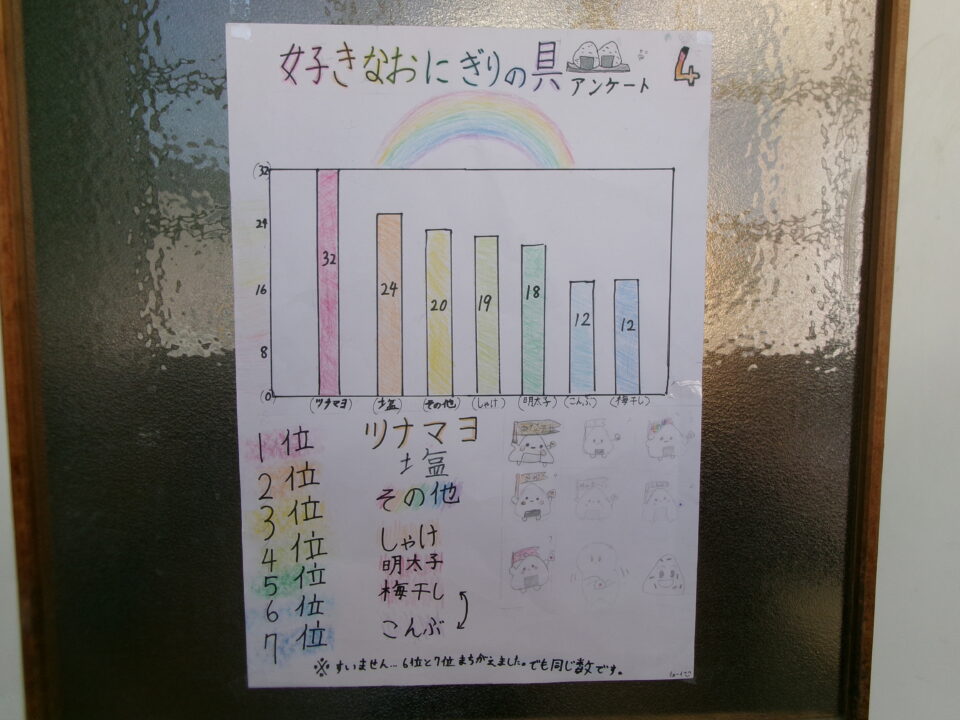 好きなおにぎりの具
アンケート
4
(32
24
16
8
(0
32
24
20
19
18
12
12
(ツナマヨ)
(塩)
(その他)
(しゃけ)
(明太子)
(こんぶ)
(梅干し)
1位 ツナマヨ
2位 塩
3位 その他
4位 しゃけ
5位 明太子
6位 梅干し
7位 こんぶ
※すいません…6位と7位まちがえました。でも同じ数です。